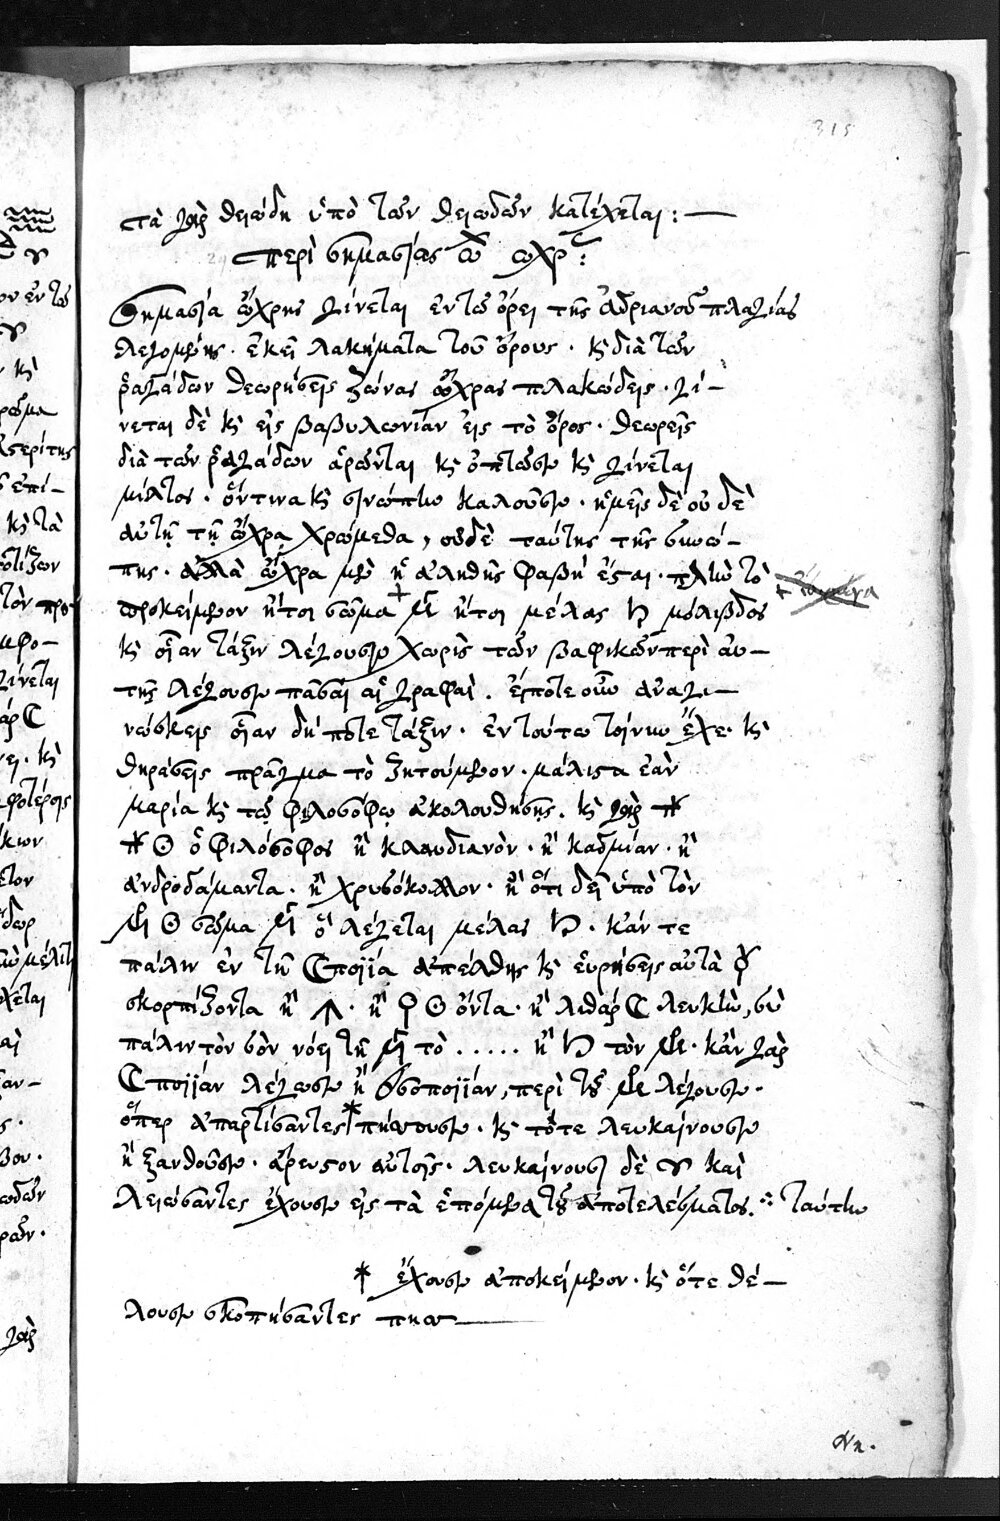 315
τὰ γὰρ θειώδη ὑπὸ τῶν θειωδῶν κατέχεται : —
περὶ σημασίας ὠχρ :
Σημασία ὤχρης γίνεται ἐν τῶ ὄρει τῆς ἀδριανοῦ πλαγίας
λεγομένης · ἐκεῖ λακήματα τοῦ ὄρους · κὶ διὰ τῶν
ῥαγάδων θεωρήσεις ζώνας ὤχρας πλακώδεις · γί–
νεται δὲ κὶ εἰς βαβυλωνίαν εἰς τὸ ὄρος · θεωρεῖς
διὰ τῶν ῥαγάδων αἴρωνται κὶ ὀπτῶσιν κὶ γίνεται
μίλτος · ὅντινα κὶ σινώπην καλοῦσιν · ἡμεῖς δὲ οὐδὲ
αὐτῆ τῆ ὤχρα χρώμεθα, οὐδὲ ταύτης τῆς σινώ–
πης · ἀλλὰ ὤχρα μὲν ἡ ἀληθὴς φασὴ ἔσται · πλὴν τὸ
προκείμενον ἤτοι σῶμα ἤτοι μέλας ♄ μόλιβδος
κὶ οἵαν τάξιν λέγουσιν χωρὶς τῶν βαφικῶν περὶ αὐ–
τῆς λέγουσιν πᾶσαι αἱ γραφαὶ · εἴποτε οὖν ἀναγι–
νώσκεις οἵαν δήποτε τάξιν · ἐν τούτω τοίνυν ἔχε · κὶ
θηράσεις πρᾶγμα τὸ ζητούμενον · μάλιστα ἐὰν
μαρία κὶ τῷ φιλοσόφῳ ἀκολουθήσῃς · κὶ γὰρ ⁜
⁜ ☉ ὁ φιλόσοφος ἢ κλαυδιανὸν · ἢ καδμίαν · ἢ
ἀνδροδάμαντα · ἢ χρυσόκολλον · ἢ ὅτι δεῖ ὑπὸ τὸν
☉ σῶμα ὃ λέγεται μέλας ♄ · κἄν τε
πάλιν ἐν τῆ ☾ποιΐα ἀπέλθης κὶ εὑρήσεις αὐτὰ
σκορπίζοντα ἢ · ἢ ☉ ὄντα · ἢ λιθάρ ☾ λευκὴν, σὺ
πάλιν τὸν σὸν νόει τὸ ..... ἢ ♄ τὸν · κἂν γὰρ
☾ποιΐαν λέγωσιν ἢ ποιΐαν, περὶ τοῦ λέγουσιν ·
ὅπερ ἀπαρτίσαντες * · κὶ τότε λευκαίνουσιν
ἢ ξανθοῦσιν · ἄρευσον αὐτοῖς · λευκαίνουσι δὲ καὶ
λειώσαντες ἔχουσιν εἰς τὰ ἑπόμενα τοῦ ἀποτελέσματος. ⁘ ταύτην
* ἔχουσιν ἀποκείμενον · κὶ ὅτε θέ–
λουσιν σκοπήσαντες